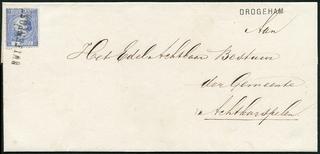 DROGEHAM
Aan
Het Edel Achtbaar Bestuur
der Gemeente
Achtkarspelen